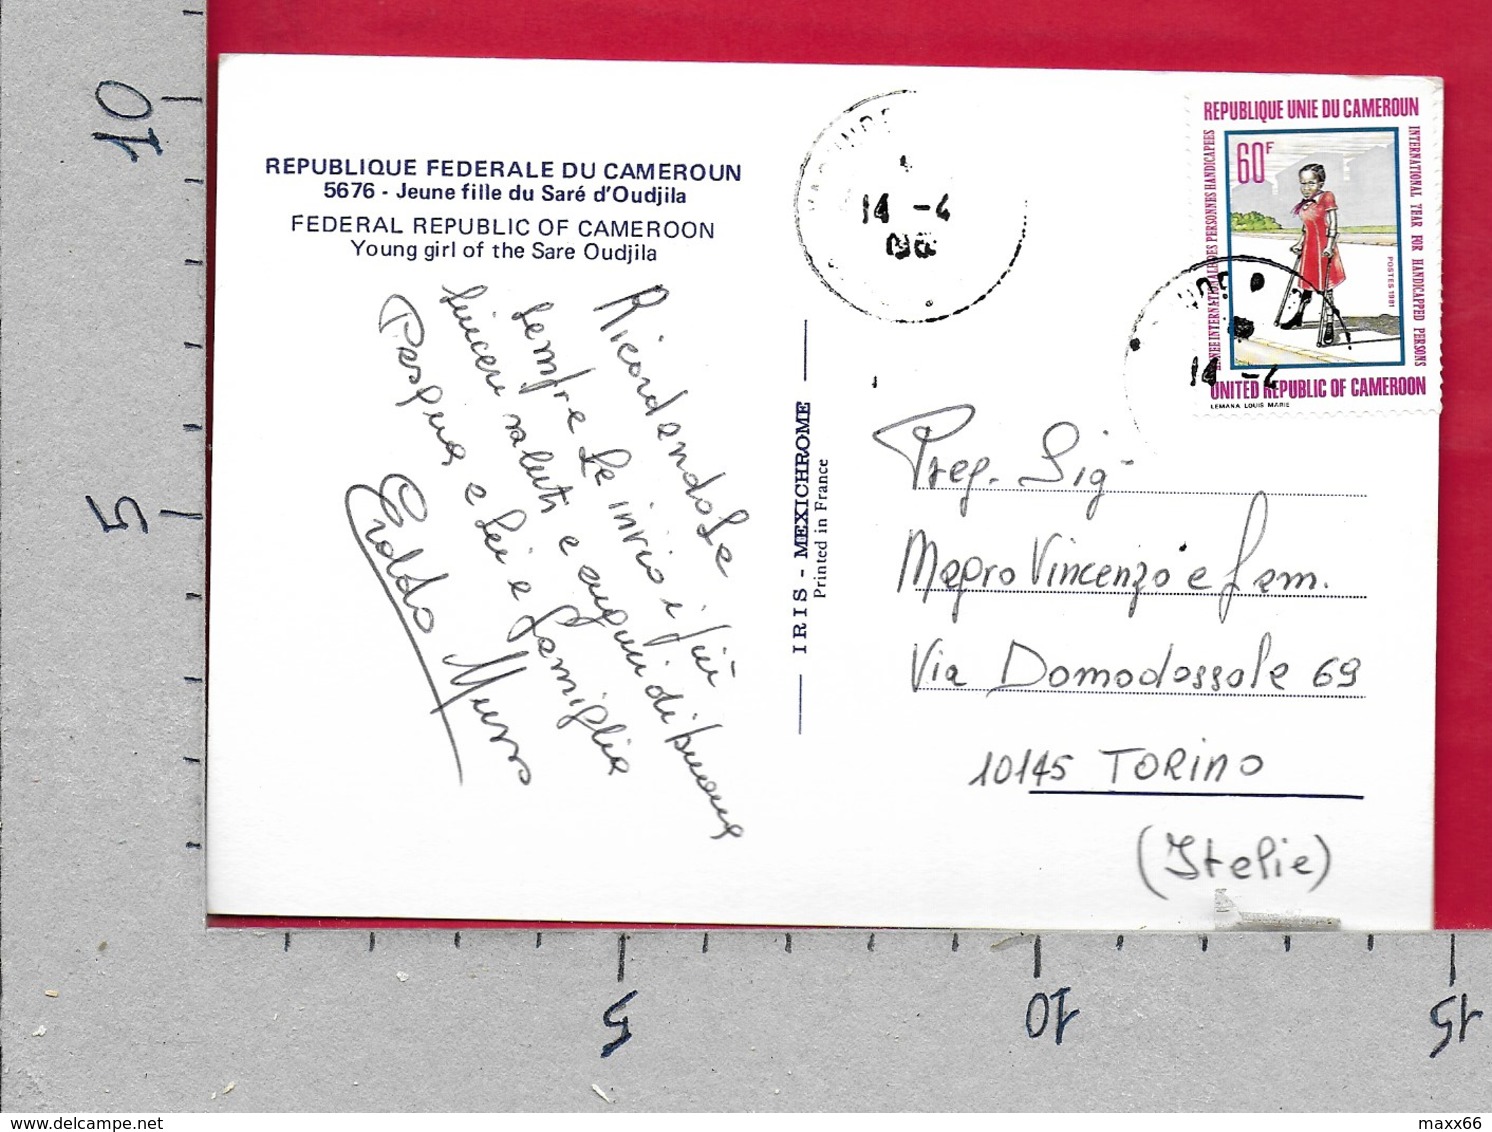 REPUBLIQUE FEDERALE DU CAMEROUN
5676 - Jeune fille du Saré d'Oudjila
FEDERAL REPUBLIC OF CAMEROON
Young girl of the Sare Oudjila
Ricordandole
sempre le invio i più
sinceri saluti e auguri di buona
Pasqua e Lei e famiglia
IRIS - MEXICHROME
Printed in France
14 -4
REPUBLIQUE UNIE DU CAMEROUN
60F
ANNEE INTERNATIONALE DES PERSONNES HANDICAPEES
INTERNATIONAL YEAR FOR HANDICAPPED PERSONS
POSTES 1981
UNITED REPUBLIC OF CAMEROON
LEMANA LOUIS MARIE
14 -4
Preg. Sig.
Mapro Vincenzo e fam.
Via Domodossola 69
10145 TORINO
(Italia)
10
5
5
10
15
maxx66